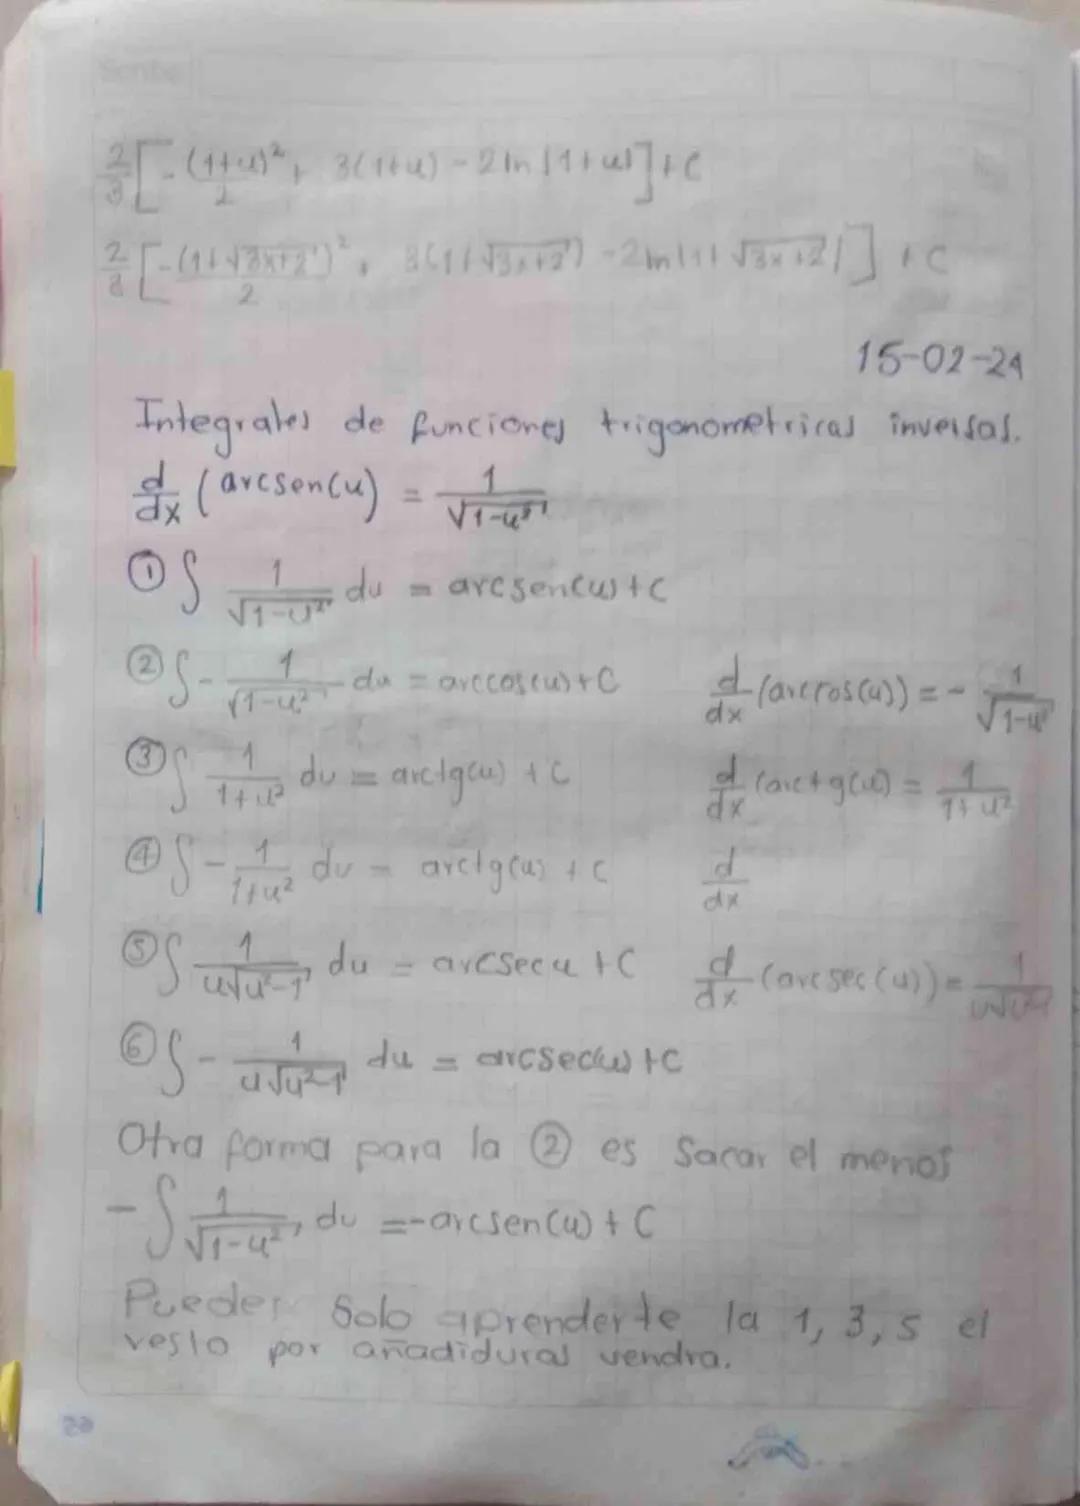 Scribe
2/3 [ -(1+u)²/2 + 3(1+u) - 2ln|1+u| ] + C
2/3 [ -(1+√3x+2)²/2 + 3(1+√3x+2) - 2ln|1+√3x+2| ] + C
15-02-24
Integrales de funciones trigonometricas inversas.
d/dx (arcsen(u) = 1/√1-u²
① ∫ 1/√1-u² du = arcsen(u) + C
② ∫ - 1/√1-u² du = arccos(u) + C d/dx (arccos(u)) = - 1/√1-u²
③ ∫ 1/1+u² du = arctg(u) + C d/dx (arctg(u) = 1/1+u²
④ ∫ - 1/1+u² du = arctg(u) + C d/dx
⑤ ∫ 1/u√u²-1 du = arcsec u + C d/dx (arcsec(u)) = 1/u√u²-1
⑥ ∫ - 1/u√u²-1 du = arcsec(u) + C
Otra forma para la ② es sacar el menos
- ∫ 1/√1-u² du = -arcsen(u) + C
Puedes solo aprenderte la 1, 3, 5 el
resto por añadiduras vendra.